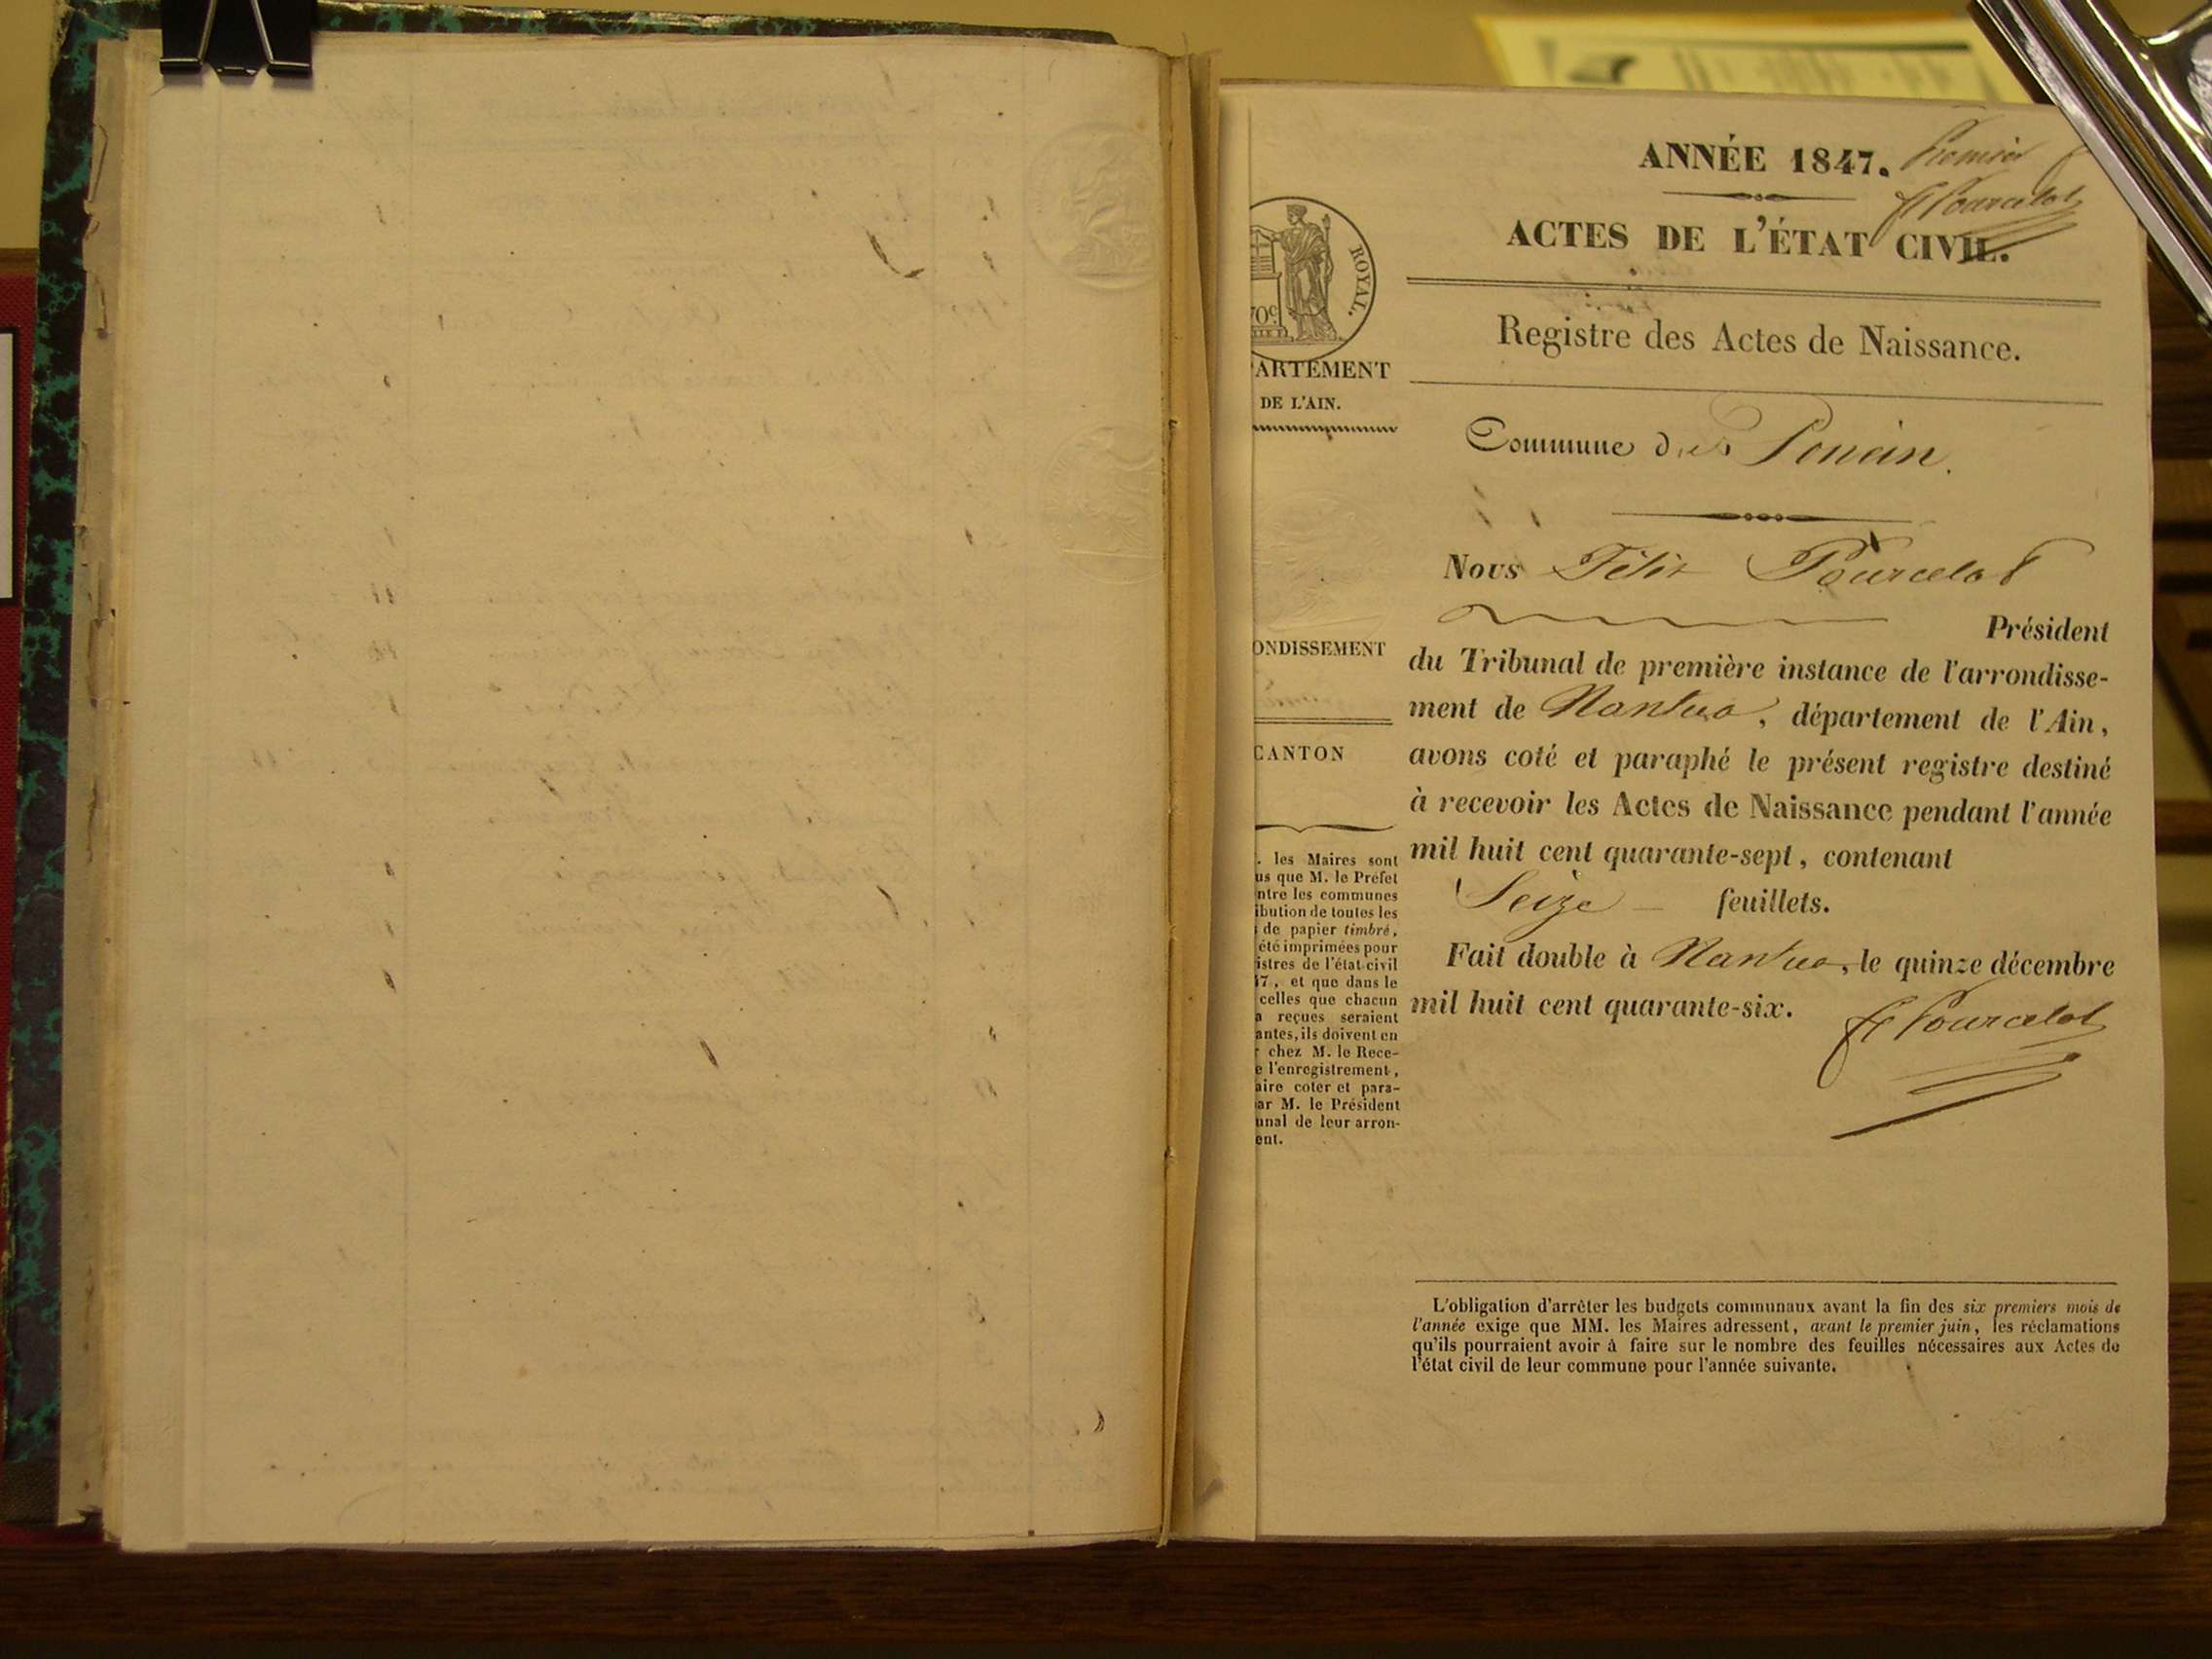 ANNÉE 1847. Premier
F Pourcelot
ACTES DE L'ÉTAT CIVIL.
Registre des Actes de Naissance.
ROYAL.
70c
ARTEMENT
DE L'AIN.
Commune de Poncin.
Nous Félix Pourcelot
Président
du Tribunal de première instance de l'arrondisse-
ment de Nantua, département de l'Ain,
avons coté et paraphé le présent registre destiné
à recevoir les Actes de Naissance pendant l'année
mil huit cent quarante-sept, contenant
Seize feuillets.
Fait double à Nantua, le quinze décembre
mil huit cent quarante-six.
F Pourcelot
ONDISSEMENT
CANTON
. les Maires sont
us que M. le Préfet
ntre les communes
ibution de toutes les
de papier timbré,
été imprimées pour
istres de l'état civil
47, et que dans le
celles que chacun
a reçues seraient
antes, ils doivent en
r chez M. le Rece-
e l'enregistrement,
aire coter et para-
ar M. le Président
unal de leur arron-
ent.
L'obligation d'arrêter les budgets communaux avant la fin des six premiers mois de
l'année exige que MM. les Maires adressent, avant le premier juin, les réclamations
qu'ils pourraient avoir à faire sur le nombre des feuilles nécessaires aux Actes de
l'état civil de leur commune pour l'année suivante.